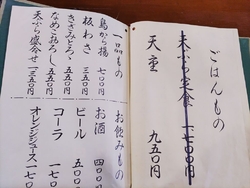 ごはんもの
天ぷら定食 一、七〇〇円
天重 九五〇円
一品もの
鳥から揚 七〇〇円
板わさ
きざみとろろ
なめこおろし 五五〇円
天ぷら盛合せ 一、三五〇円
お飲みもの
お酒 四〇〇
ビール 五五〇
コーラ 一七
オレンジジュース 一七